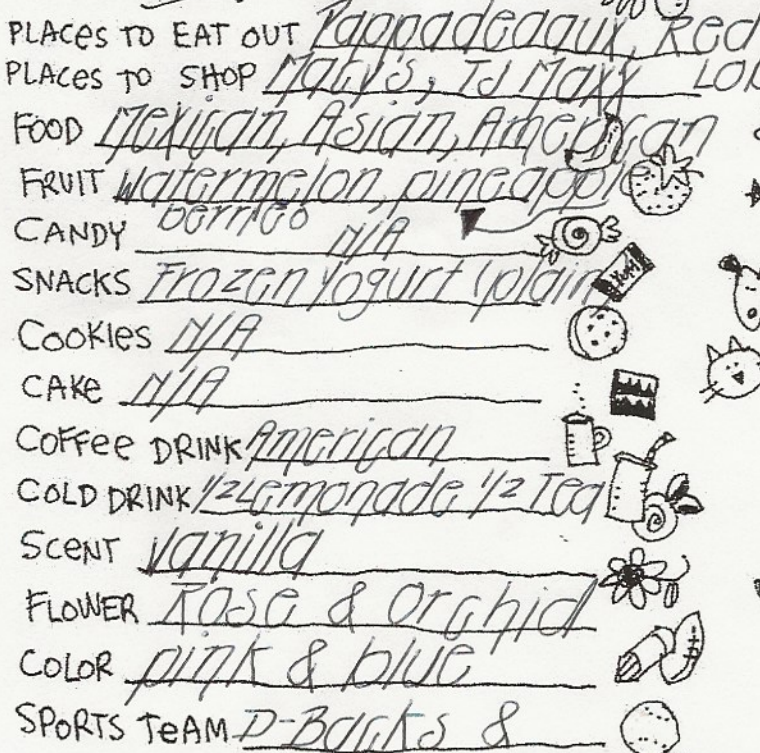 PLACES TO EAT OUT Pappadeaux, Red
PLACES TO SHOP Macy's, TJ Maxx
FOOD Mexican, Asian, American
FRUIT Watermelon, pineapple
berries
CANDY N/A
SNACKS Frozen Yogurt (plain)
YUM!
COOKIES N/A
CAKE N/A
COFFEE DRINK American
COLD DRINK 1/2 Lemonade 1/2 Tea
SCENT Vanilla
FLOWER Rose & Orchid
COLOR pink & blue
SPORTS TEAM D-Backs &